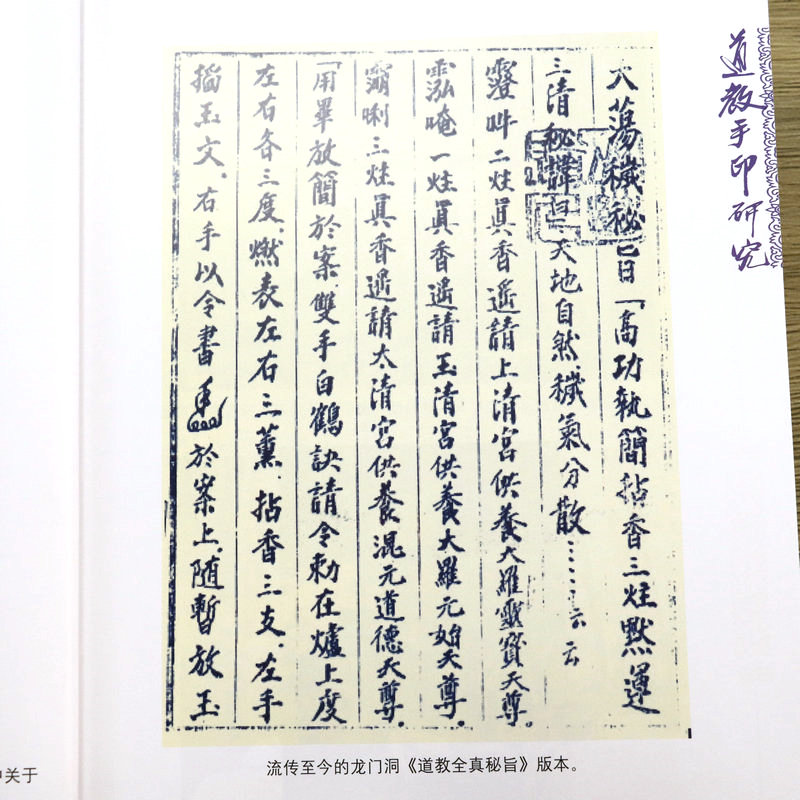 道教手印研究
大蕩穢秘旨「高功執簡拈香三炷默運
三清秘諱曰天地自然穢氣分散……云云
吽二炷眞香遥請上清宫供養大羅靈寶天尊。
唵一炷眞香遥請玉清宫供養大羅元始天尊。
唎三炷眞香遥請太清宫供養混元道德天尊。
「用畢放簡於案.雙手白鶴訣請令勅在爐上度
左右各三度.燃表左右三薰.拈香三支.左手
掐玉文.右手以令書於案上.随暫放玉
流传至今的龙门洞《道教全真秘旨》版本。
关于